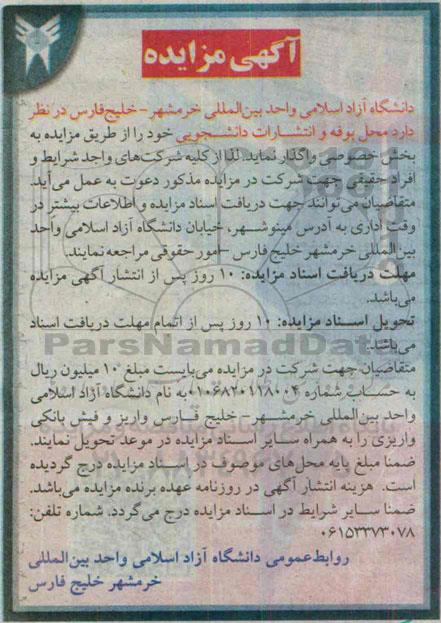 آگهی مزایده
دانشگاه آزاد اسلامی واحد بین‌المللی خرمشهر – خلیج‌فارس در نظر
دارد محل بوفه و انتشارات دانشجویی خود را از طریق مزایده به
بخش خصوصی واگذار نماید. لذا از کلیه شرکت‌های واجد شرایط و
افراد حقیقی جهت شرکت در مزایده مذکور دعوت به عمل می‌آید.
متقاضیان می‌توانند جهت دریافت اسناد مزایده و اطلاعات بیشتر در
وقت اداری به آدرس مینوشهر، خیابان دانشگاه آزاد اسلامی واحد
بین‌المللی خرمشهر خلیج فارس – امور حقوقی مراجعه نمایند.
مهلت دریافت اسناد مزایده: ۱۰ روز پس از انتشار آگهی مزایده
می‌باشد.
تحویل اسناد مزایده: ۱۰ روز پس از اتمام مهلت دریافت اسناد
می‌باشد.
ParsNamadData
متقاضیان جهت شرکت در مزایده می‌بایست مبلغ ۱۰ میلیون ریال
به حساب شماره ۰۱۰۶۸۲۰۱۱۸۰۰۴ به نام دانشگاه آزاد اسلامی
واحد بین‌المللی خرمشهر – خلیج فارس واریز و فیش بانکی
واریزی را به همراه سایر اسناد مزایده در موعد تحویل نمایند.
ضمنا مبلغ پایه محل‌های موصوف در اسناد مزایده درج گردیده
است. هزینه انتشار آگهی در روزنامه عهده برنده مزایده می‌باشد.
ضمنا سایر شرایط در اسناد مزایده درج می‌گردد. شماره تلفن:
۰۶۱۵۳۳۷۳۰۷۸
روابط عمومی دانشگاه آزاد اسلامی واحد بین‌المللی
خرمشهر خلیج فارس